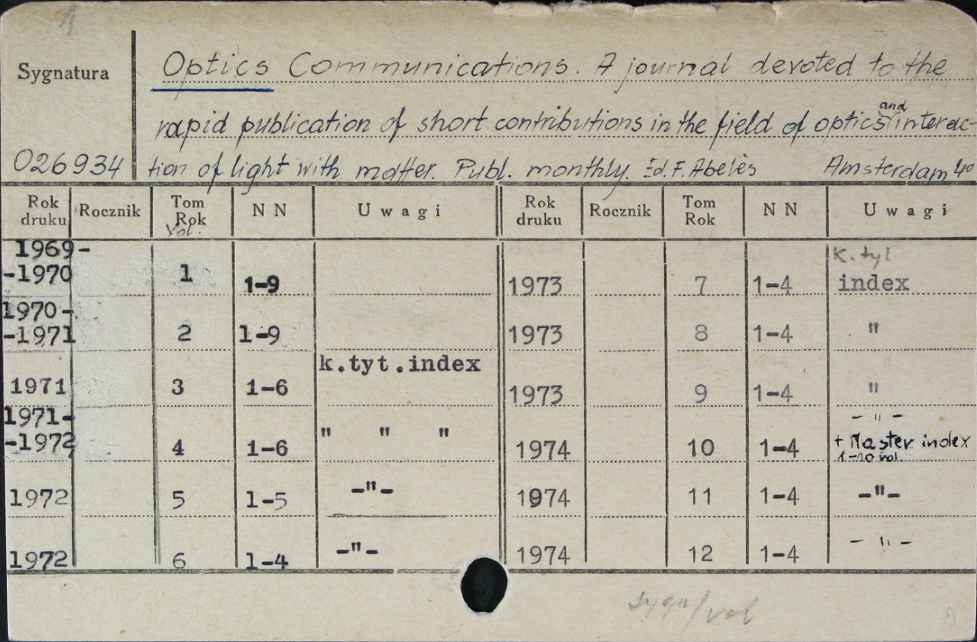 Sygnatura
Optics Communications. A journal devoted to the
rapid publication of short contributions in the field of optics and interac-
026934 tion of light with matter. Publ. monthly. Ed. F. Abelès Amsterdam 4o
Rok druku Rocznik Tom Rok Vol. N N Uwagi Rok druku Rocznik Tom Rok N N Uwagi
1969-
-1970 1 1-9 1973 7 1-4 k.tyt index
1970-
-1971 2 1-9 1973 8 1-4 "
1971 3 1-6 k.tyt.index 1973 9 1-4 "
1971-
-1972 4 1-6 " " " 1974 10 1-4 - " - + Master index 1-10 vol.
1972 5 1-5 -"- 1974 11 1-4 -"-
1972 6 1-4 -"- 1974 12 1-4 - " -
sygn/vol